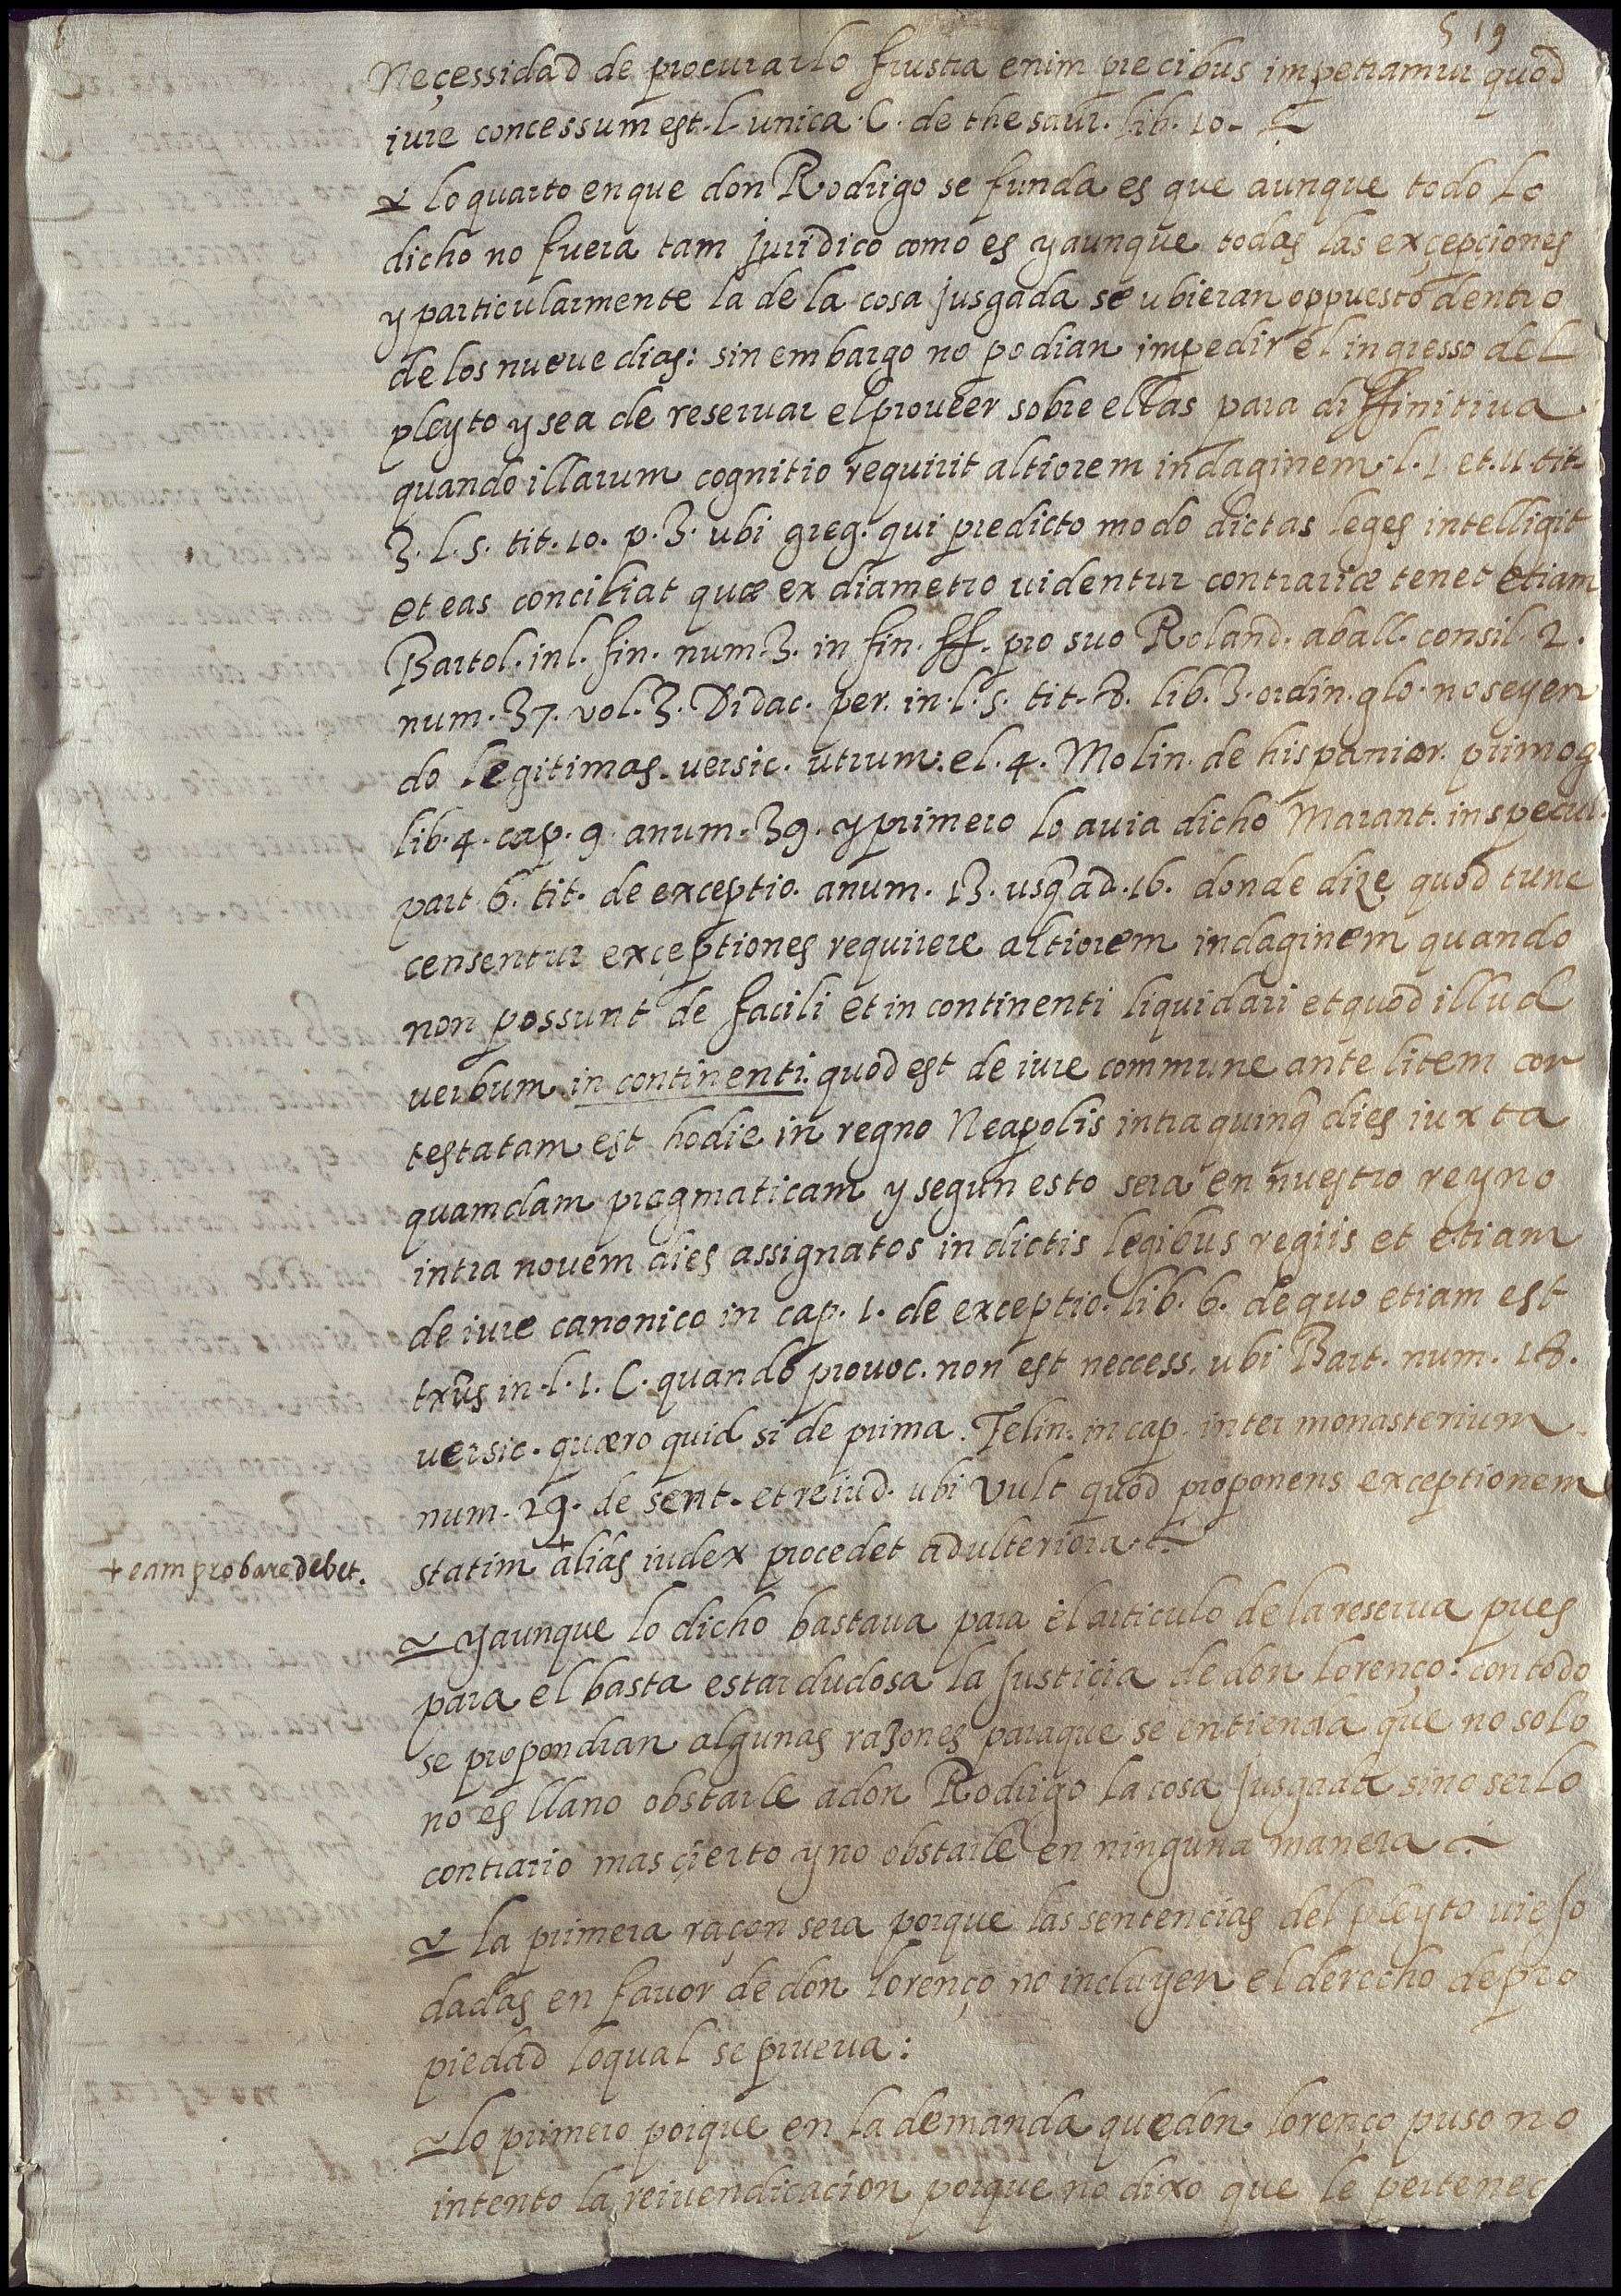 519
Neçessidad de procurarlo frustra enim precibus impetramur quod
iure concessum est. L unica. C. de thesaur. lib. 10.
lo quarto en que don Rodrigo se funda es que aunque todo lo
dicho no fuera tam juridico como es y aunque todas las exçepciones
y particularmente la de la cosa jusgada se ubieran oppuesto dentro
de los nueue dias: sin embargo no podian impedir el ingresso del
pleyto y sea de reseruar el proueer sobre ellas para diffinitiua
quando illarum cognitio requirit altiorem indaginem. l. 1. et. 11. tit.
3. l. 5. tit. 10. p. 3. ubi greg. qui predicto modo dictas leges intelligit
et eas conciliat quæ ex diametro uidentur contrariæ tenet etiam
Bartol. in l. fin. num. 3. in fin. ff. pro suo Roland. a uall. consil 2.
num. 37. vol. 3. Didac. per. in. l. 5. tit. 8. lib. 3. ordin. glo. no seyen
do legitimas. uersic. utrum. el. 4. Molin. de hispanior. primog.
lib. 4. cap. 9. anum. 39. y primero lo auia dicho Marant. in specul.
part 6. tit. de exceptio. anum. 13. usq̃ ad. 16. donde dize quod tunc
censentur exçeptiones requirere altiorem indaginem quando
non possunt de facili et in continenti liquidari et quod illud
uerbum in continenti. quod est de iure commune ante litem con
testatam est hodie in regno Neapolis intra quinq̃ dies iuxta
quamdam pragmaticam y segun esto sera en nuestro reyno
intra nouem dies assignatos in dictis legibus regiis et etiam
de iure canonico in cap. 1. de exceptio. lib. 6. de quo etiam est
txũs in. l. 1. C. quando prouoc. non est neccess. ubi Bart. num. 18.
uersic. quæro quid si de prima. Felin. in cap. inter monasterium
num. 29. de sent. et re iud. ubi vult quod proponens exceptionem
statim + alias iudex procedet ad ulteriora.
+ eam probare debet.
y aunque lo dicho bastaua para el articulo de la reserua pues
para el basta estar dudosa la Justiçia de don lorenço: con todo
se propondran algunas razones para que se entienda que no solo
no es llano obstarle a don Rodrigo la cosa Jusgada sino ser lo
contrario mas çierto y no obstarle en ninguna manera
la primera raçon sera porque las sentencias del pleyto uiejo
dadas en fauor de don lorenço no incluyen el derecho de pro
piedad loqual se prueua:
lo primero porque en la demanda que don lorenço puso no
intento la reiuendicacion porque no dixo que le pertenec